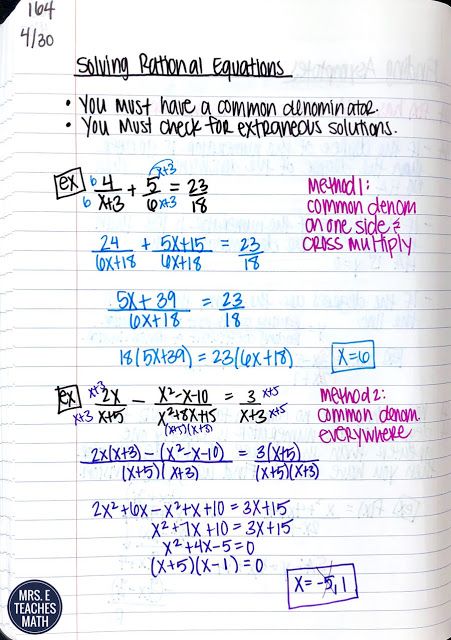 164
4/30
Solving Rational Equations
• You must have a common denominator.
• You must check for extraneous solutions.
ex 6 4/x+3 6 + 5/6 x+3 x+3 = 23/18
Method 1:
common denom
on one side &
cross multiply
24/6x+18 + 5x+15/6x+18 = 23/18
5x+39/6x+18 = 23/18
18(5x+39) = 23(6x+18)
x=6
ex x+3 2x/x+5 x+3 − x²-x-10/x²+8x+15 = 3/x+3 x+5 x+5
(x+5)(x+3)
Method 2:
common denom.
everywhere
2x(x+3) − (x²-x-10)/(x+5)(x+3) = 3(x+5)/(x+5)(x+3)
2x²+6x-x²+x+10 = 3x+15
x²+7x+10 = 3x+15
x²+4x-5=0
(x+5)(x-1)=0
x= -5, 1
MRS. E
TEACHES
MATH